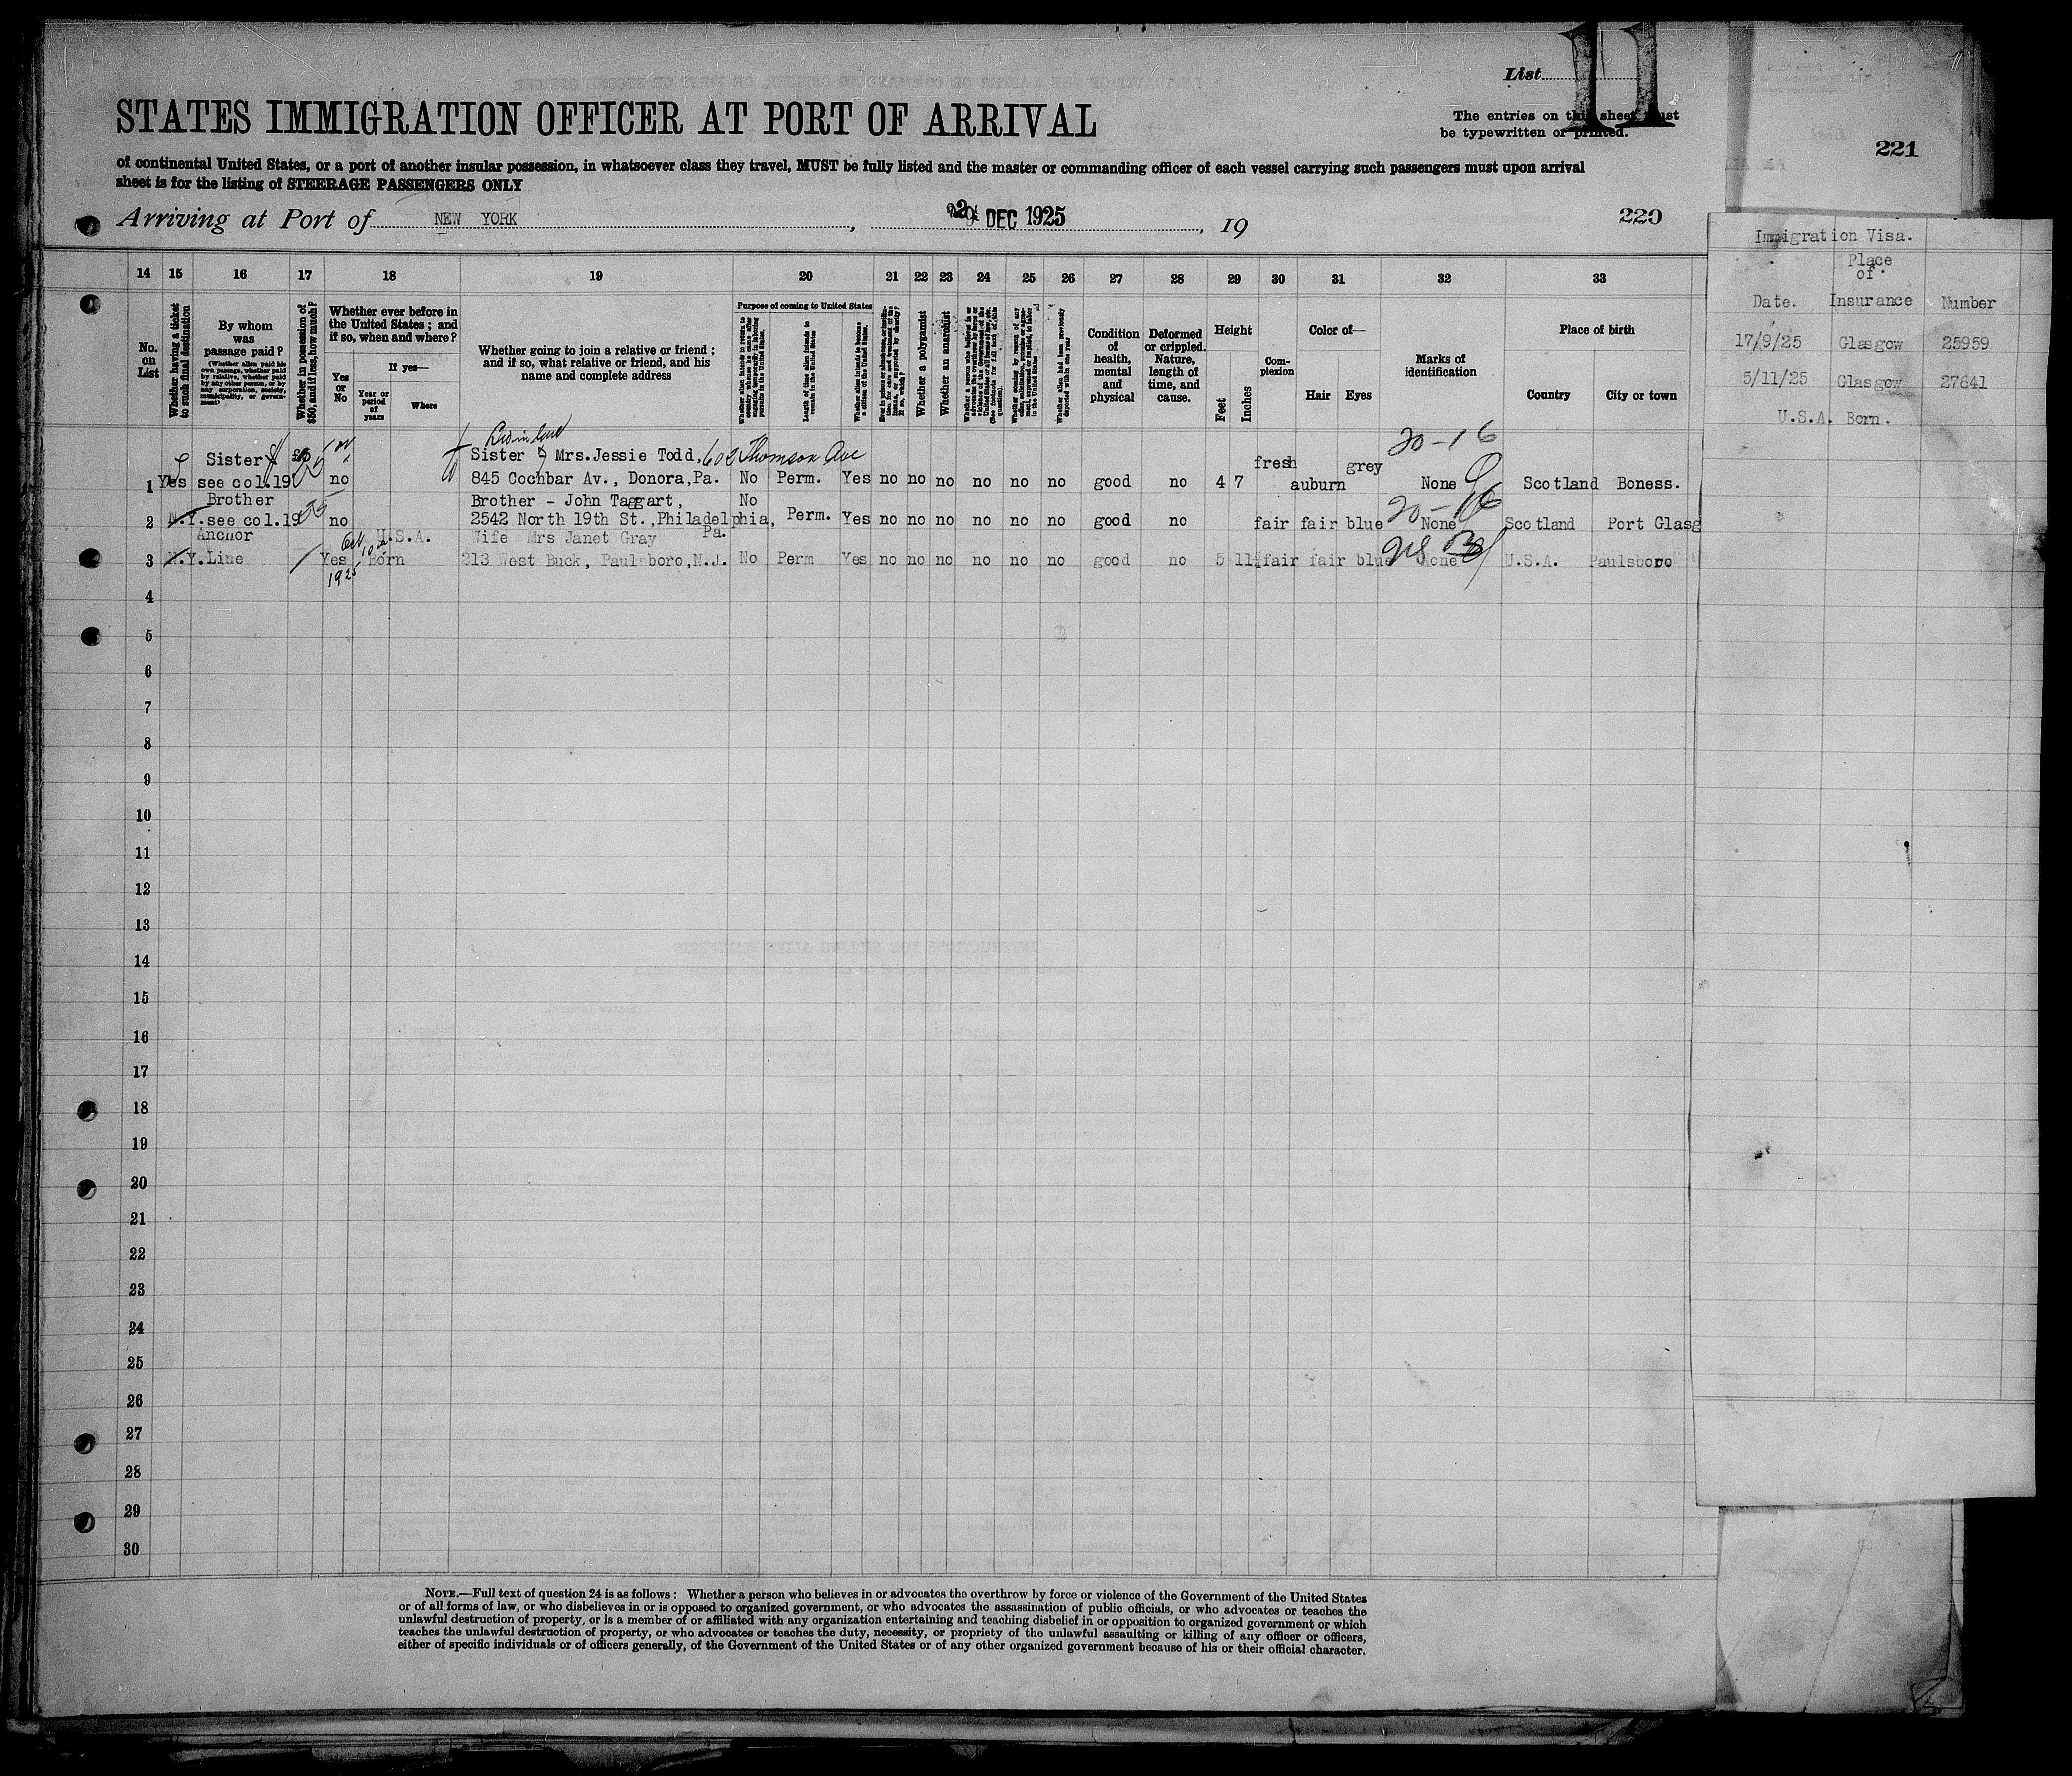 List 11
STATES IMMIGRATION OFFICER AT PORT OF ARRIVAL
The entries on this sheet must
be typewritten or printed.
221
of continental United States, or a port of another insular possession, in whatsoever class they travel, MUST be fully listed and the master or commanding officer of each vessel carrying such passengers must upon arrival
sheet is for the listing of STEERAGE PASSENGERS ONLY
Arriving at Port of NEW YORK, DEC 1925, 19
220
14 15 16 17 18 19 20 21 22 23 24 25 26 27 28 29 30 31 32 33
No. on List
Whether having a ticket to such final destination
By whom was passage paid?
(Whether alien paid his own passage, whether paid by relative, whether paid by any other person, or by any corporation, society, municipality, or government)
Whether in possession of $50, and if less, how much?
Whether ever before in the United States; and if so, when and where?
Yes or No
If yes—
Year or period of years
Where
Whether going to join a relative or friend; and if so, what relative or friend, and his name and complete address
Purpose of coming to United States
Length of time alien intends to remain in the United States
Whether alien intends to become a citizen of the United States.
Whether a polygamist
Whether an anarchist
Whether alien had been previously deported within one year
Condition of health, mental and physical
Deformed or crippled. Nature, length of time, and cause.
Height
Feet
Inches
Complexion
Color of—
Hair Eyes
Marks of identification
Place of birth
Country
City or town
Immigration Visa.
Place of
Date. Insurance Number
17/9/25 Glasgow 25959
5/11/25 Glasgow 27641
U.S.A. Born.
20-16
Sister Sister Mrs. Jessie Todd, 608 Thomson Ave fresh grey
1 Yes see col.19 25 no 845 Cochbar Av., Donora,Pa. No Perm. Yes no no no no no no good no 4 7 auburn None Scotland Boness.
Brother Brother - John Taggart, No 20-16
2 N.Y. see col.19 25 no 2542 North 19th St.,Philadelphia, Pa. Perm. Yes no no no no no no good no fair fair blue None Scotland Port Glasg
Anchor U.S.A. Wife Mrs Janet Gray
3 N.Y. Line Yes 1925 Born 213 West Buck, Paulsboro,N.J. No Perm Yes no no no no no no good no 5 11½ fair fair blue None U.S.A. Paulsboro
4
5
6
7
8
9
10
11
12
13
14
15
16
17
18
19
20
21
22
23
24
25
26
27
28
29
30
NOTE.—Full text of question 24 is as follows: Whether a person who believes in or advocates the overthrow by force or violence of the Government of the United States
or of all forms of law, or who disbelieves in or is opposed to organized government, or who advocates the assassination of public officials, or who advocates or teaches the
unlawful destruction of property, or is a member of or affiliated with any organization entertaining and teaching disbelief in or opposition to organized government or which
teaches the unlawful destruction of property, or who advocates or teaches the duty, necessity, or propriety of the unlawful assaulting or killing of any officer or officers,
either of specific individuals or of officers generally, of the Government of the United States or of any other organized government because of his or their official character.